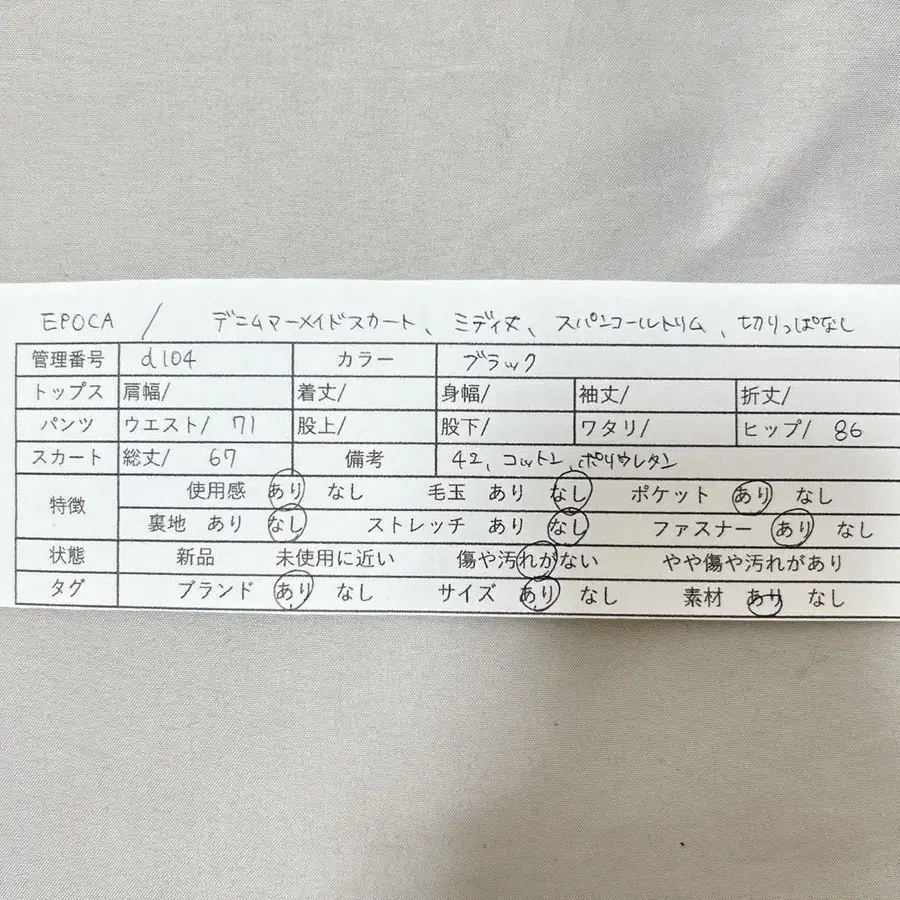 EPOCA / デニムマーメイドスカート、ミディ丈、スパンコールトリム、切りっぱなし
管理番号 d104 カラー ブラック
トップス 肩幅/ 着丈/ 身幅/ 袖丈/ 折丈/
パンツ ウエスト/ 71 股上/ 股下/ ワタリ/ ヒップ/ 86
スカート 総丈/ 67 備考 42、コットン、ポリウレタン
特徴 使用感 あり なし 毛玉 あり なし ポケット あり なし
裏地 あり なし ストレッチ あり なし ファスナー あり なし
状態 新品 未使用に近い 傷や汚れがない やや傷や汚れがあり
タグ ブランド あり なし サイズ あり なし 素材 あり なし